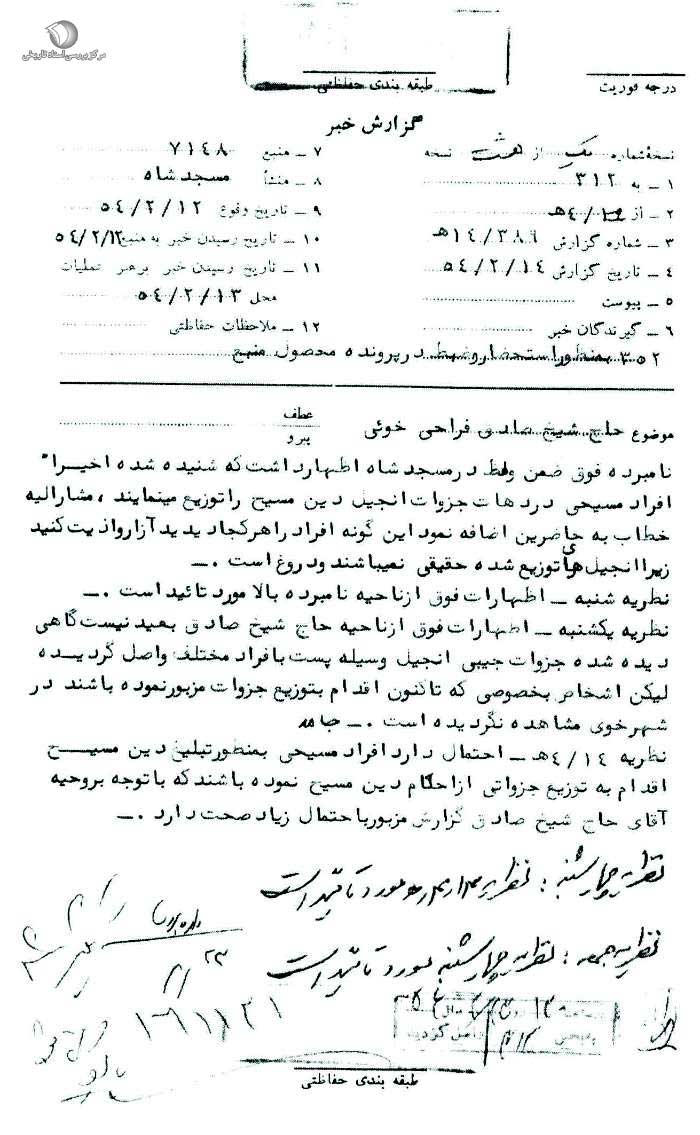 مرکز بررسی اسناد تاریخی
طبقه بندی حفاظتی
درجه فوریت
گزارش خبر
نسخهٔ شماره یک از هشت نسخه
۱ ــ به ۳۱۲
۲ ــ از ۴/۱۴هـ
۳ ــ شماره گزارش ۱۴/۳۸۹هـ
۴ ــ تاریخ گزارش ۵۴/۲/۱۴
۵ ــ پیوست
۶ ــ گیرندگان خبر
۷ ــ منبع ۷۱۴۸
۸ ــ منشأ مسجد شاه
۹ ــ تاریخ وقوع ۵۴/۲/۱۲
۱۰ ــ تاریخ رسیدن خبر به منبع ۵۴/۲/۱۲
۱۱ ــ تاریخ رسیدن خبر برهبر عملیات
محل ۵۴/۲/۱۳
۱۲ ــ ملاحظات حفاظتی
۳۵۲ بمنظور استحضار و ضبط در پرونده محصول منبع
موضوع حاج شیخ صادق فراحی خوئی
عطف
پیرو
نامبرده فوق ضمن وعظ در مسجد شاه اظهار داشت که شنیده شده اخیرا"
افراد مسیحی در دهات جزوات انجیل دین مسیح را توزیع مینمایند ، مشارالیه
خطاب به حاضرین اضافه نمود این گونه افراد را هر کجا دیدید آزار و اذیت کنید
زیرا انجیل های توزیع شده حقیقی نمیباشند و دروغ است .ــ
نظریه شنبه ــ اظهارات فوق از ناحیه نامبرده بالا مورد تائید است .ــ
نظریه یکشنبه ــ اظهارات فوق از ناحیه حاج شیخ صادق بعید نیست گاهی
دیده شده جزوات جیبی انجیل وسیله پست بافراد مختلف واصل گردیده
لیکن اشخاص بخصوصی که تاکنون اقدام بتوزیع جزوات مزبور نموده باشند در
شهر خوی مشاهده نگردیده است .ــ حامد
نظریه ۴/۱۴هـ ــ احتمال دارد افراد مسیحی بمنظور تبلیغ دین مسیح
اقدام به توزیع جزواتی از احکام دین مسیح نموده باشند که با توجه بروحیه
آقای حاج شیخ صادق گزارش مزبور باحتمال زیاد صحت دارد .ــ
نظریه چهارشنبه : نظریه ۴/۱۴هـ مورد تائید است
نظریه جمعه : نظریه چهارشنبه مورد تائید است
۲۳
۱۶۱۱۲۱
طبقه بندی حفاظتی